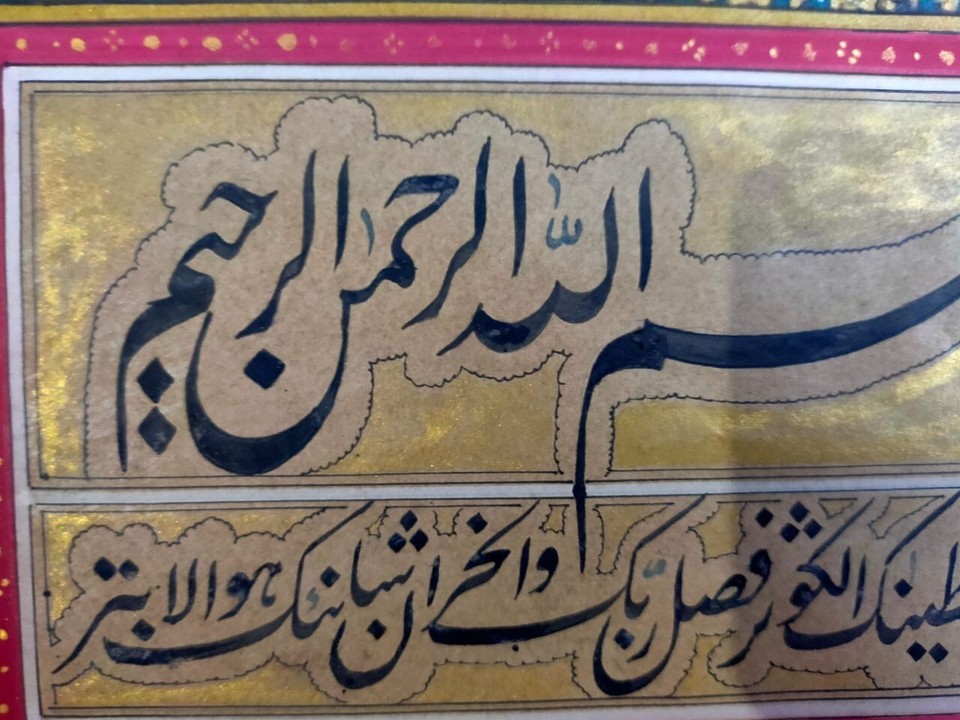 سم الله الرحمن الرحیم
طینک الکوثر فصل لربک وانحر ان شانئک هو الابتر